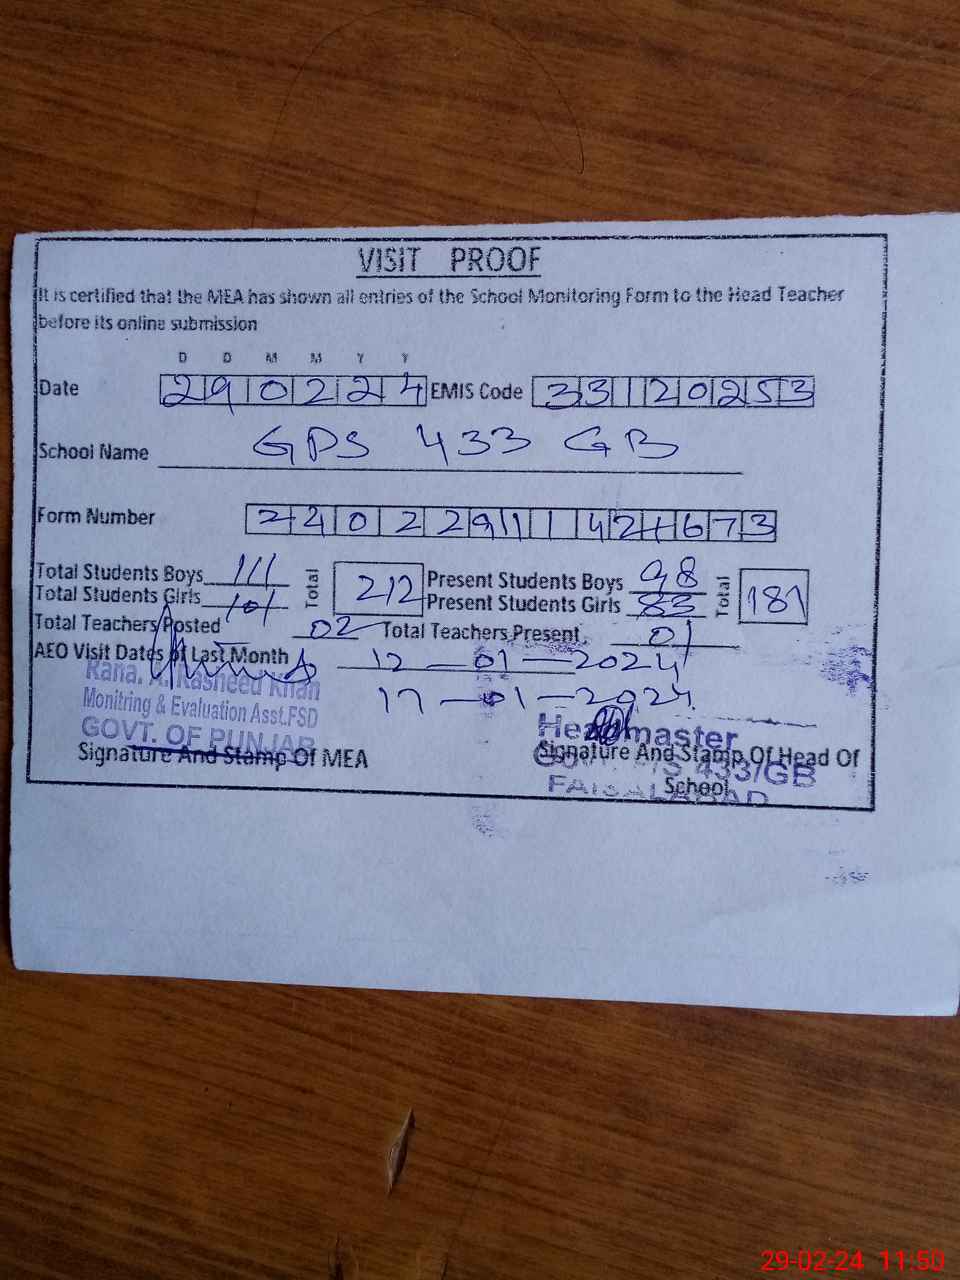 VISIT PROOF
It is certified that the MEA has shown all entries of the School Monitoring Form to the Head Teacher
before its online submission
D D M M Y Y
Date 290224 EMIS Code 33120253
School Name GPS 433 GB
Form Number 24022911424673
Total Students Boys 111 Total 212 Present Students Boys 98 Total 181
Total Students Girls 101 Present Students Girls 83
Total Teachers Posted 02 Total Teachers Present 01
AEO Visit Dates of Last Month 12-01-2024
17-01-2024
Rana. A. Rasheed Khan
Monitring & Evaluation Asst.FSD
GOVT. OF PUNJAB
Signature And Stamp Of MEA
Headmaster
433/GB
FAISALABAD
Signature And Stamp Of Head Of
School
29-02-24 11:50